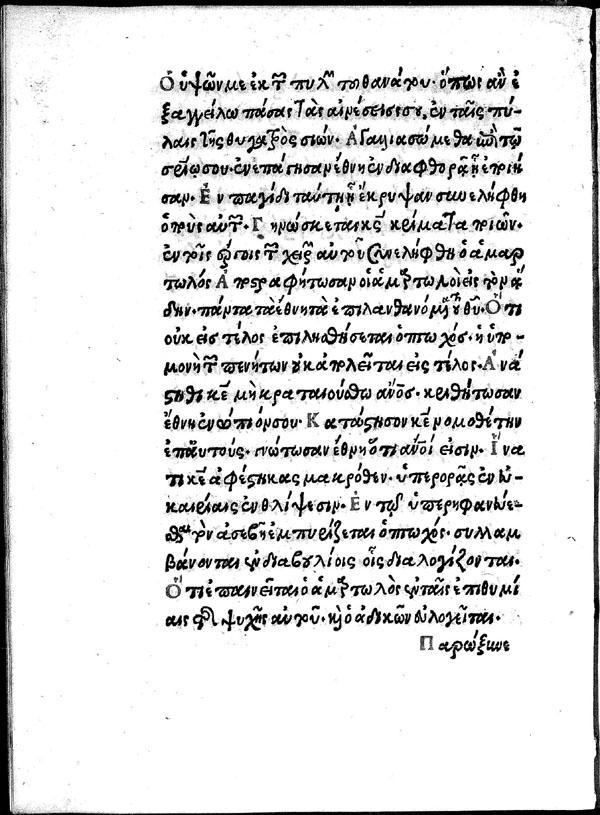 Ὁ ὑψῶν με ἐκ τῶν πυλῶν τοῦ θανάτου· ὅπως ἂν ἐ
ξαγγείλω πάσας τὰς αἰνέσεις σου, ἐν ταῖς πύ-
λαις τῆς θυγατρὸς σιών· Ἀγαλλιασώμεθα ἐπὶ τῷ
σρίω σου· ἐνεπάγησαν ἔθνη ἐν διαφθορᾷ ᾗ ἐποίη
σαν· Ἐν παγίδι ταύτῃ ᾗ ἔκρυψαν συνελήφθη
ὁ ποὺς αὐτῶν· Γινώσκεται κς κρίματα ποιῶν·
ἐν τοῖς ἔργοις τῶν χειρῶν αὐτοῦ συνελήφθη ὁ ἁμαρ
τωλός Ἀποστραφήτωσαν οἱ ἁμαρτωλοὶ εἰς τὸν ᾅ
δην· πάντα τὰ ἔθνη τὰ ἐπιλανθανόμενα τοῦ θυ· Ὅτι
οὐκ εἰς τέλος ἐπιλησθήσεται ὁ πτωχός· ἡ ὑπο-
μονὴ τῶν πενήτων οὐκ ἀπολεῖται εἰς τέλος· Ἀνά
στηθι κε μὴ κραταιούσθω ανος· κριθήτωσαν
ἔθνη ἐνώπιόν σου· Κατάστησον κε νομοθέτην
ἐπ' αὐτούς· γνώτωσαν ἔθνη ὅτι ανοι εἰσιν· Ἵνα
τί κε ἀφέστηκας μακρόθεν· ὑπερορᾷς ἐν εὐ-
καιρίαις ἐν θλίψεσιν· Ἐν τῷ ὑπερηφανεύε-
σθαι τὸν ἀσεβῆ ἐμπυρίζεται ὁ πτωχός· συλλαμ
βάνονται ἐν διαβουλίοις οἷς διαλογίζονται·
Ὅτι ἐπαινεῖται ὁ ἁμαρτωλὸς ἐν ταῖς ἐπιθυμί
αις τῆς ψυχῆς αὐτοῦ· καὶ ὁ ἀδικῶν εὐλογεῖται·
Παρώξυνε